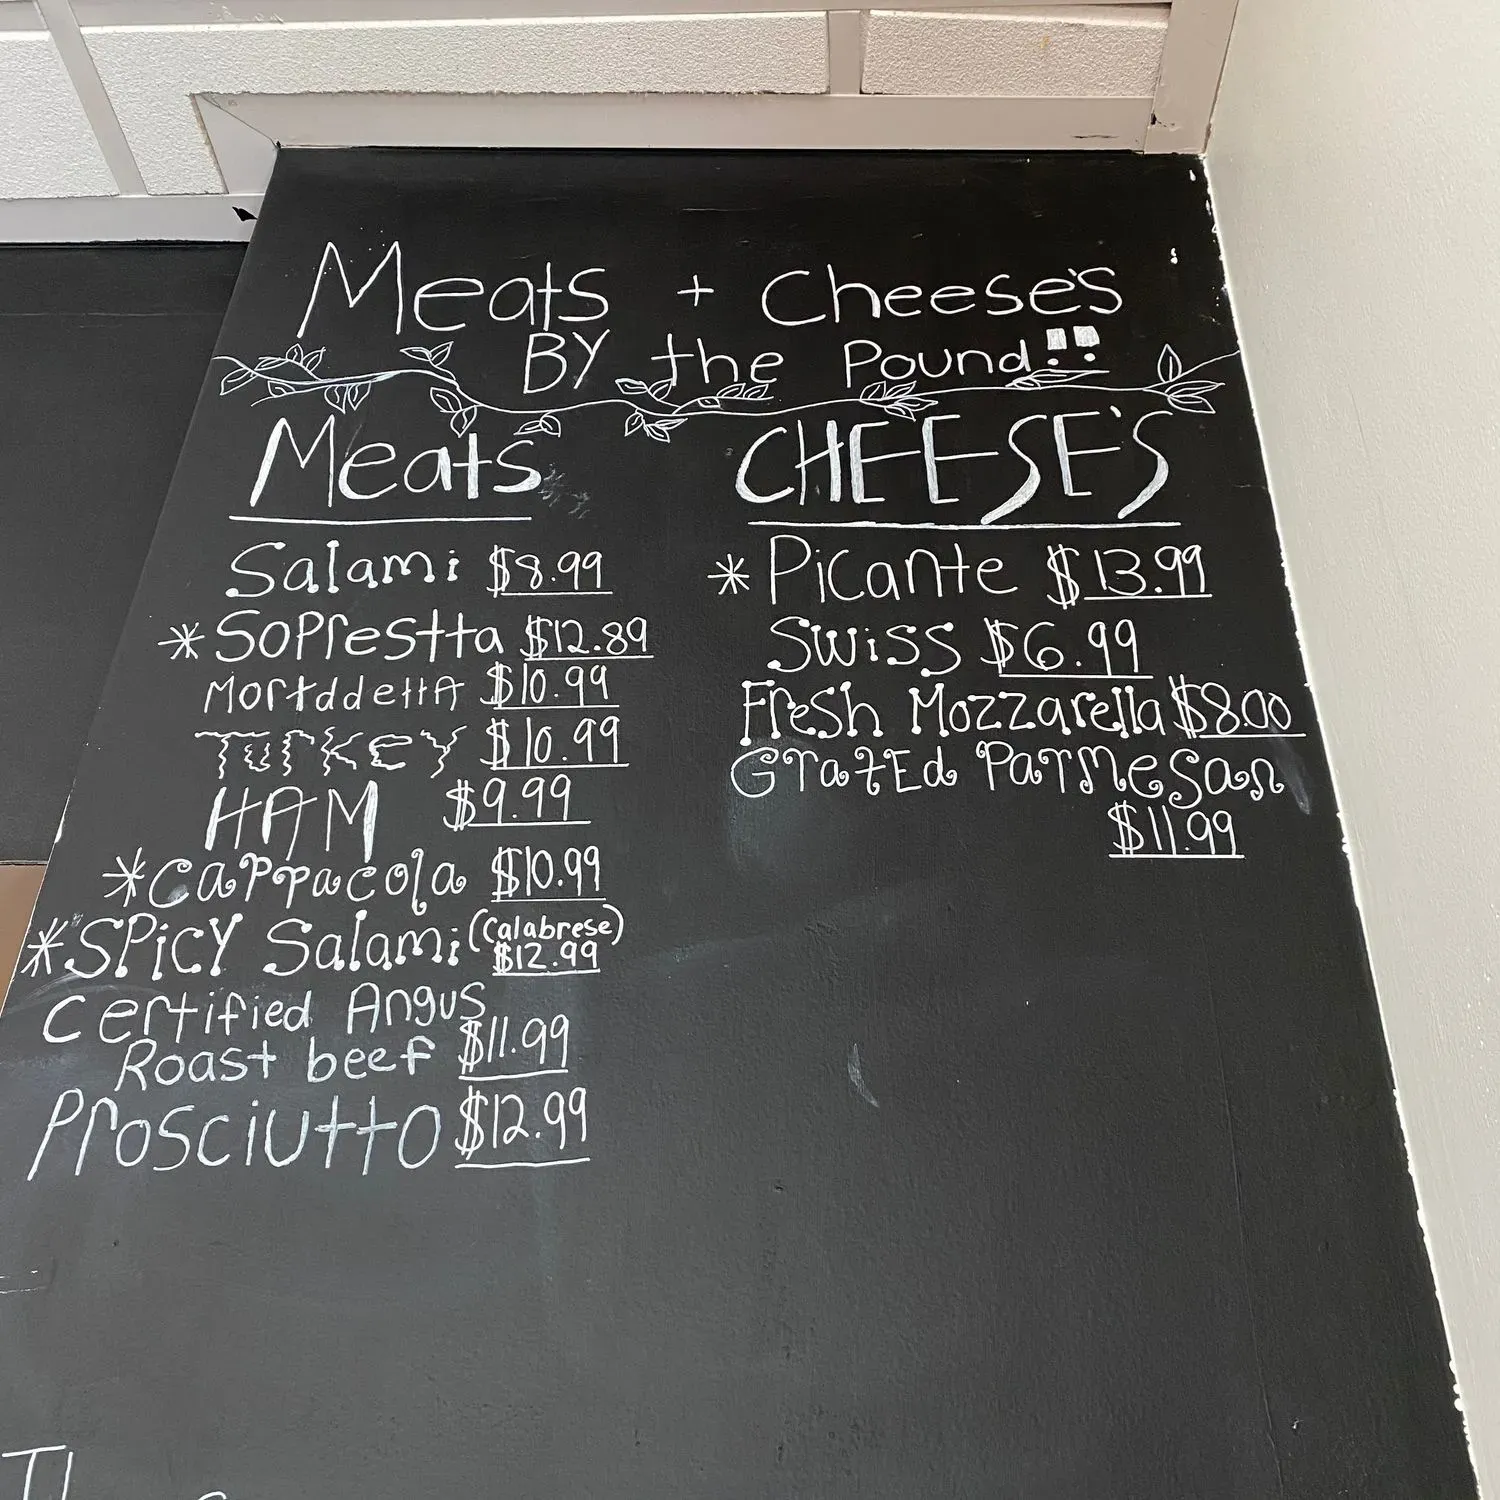 Meats + Cheese's
BY the Pound!!
Meats
Salami $8.99
*Soprestta $12.89
Mortddella $10.99
Turkey $10.99
HAM $9.99
*Cappacola $10.99
*SPicY Salami (Calabrese)
$12.99
Certified Angus
Roast beef $11.99
Prosciutto $12.99
CHEESE'S
* Picante $13.99
Swiss $6.99
Fresh Mozzarella $8.00
Grated Parmesan
$11.99